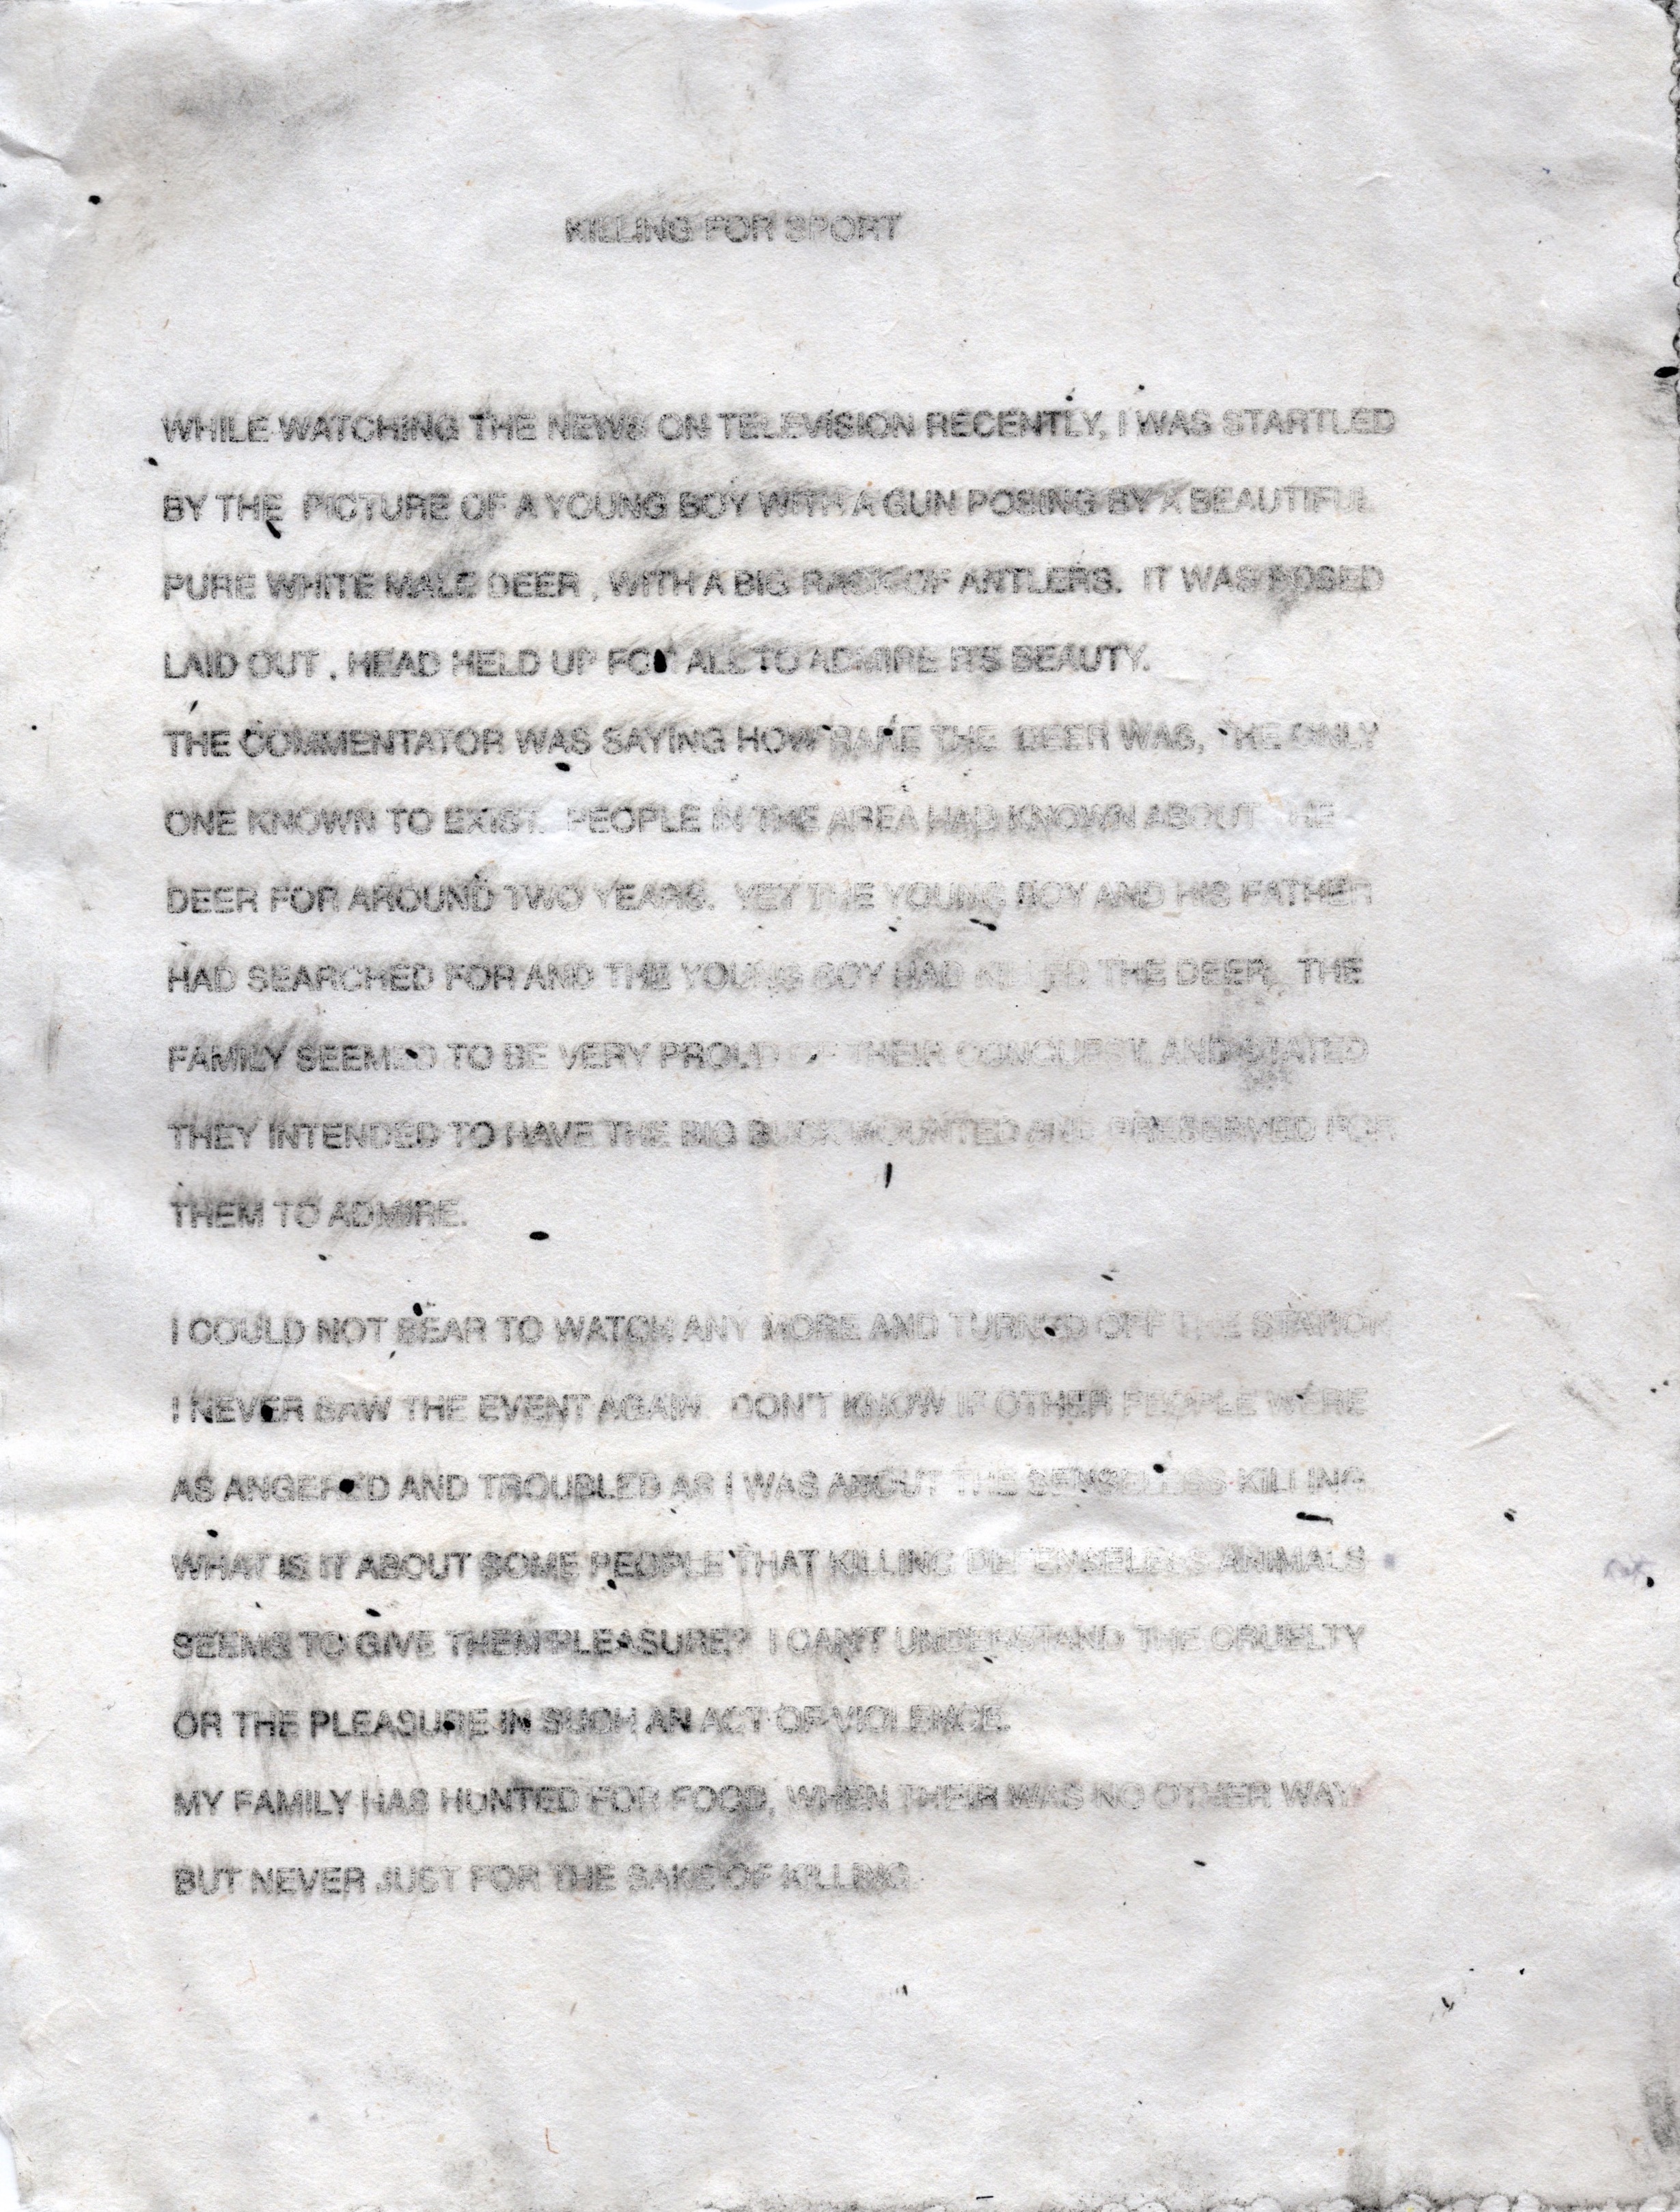 KILLING FOR SPORT
WHILE WATCHING THE NEWS ON TELEVISION RECENTLY, I WAS STARTLED
BY THE PICTURE OF A YOUNG BOY WITH A GUN POSING BY A BEAUTIFUL
PURE WHITE MALE DEER , WITH A BIG RACK OF ANTLERS. IT WAS POSED
LAID OUT , HEAD HELD UP FOR ALL TO ADMIRE ITS BEAUTY.
THE COMMENTATOR WAS SAYING HOW RARE THE DEER WAS, THE ONLY
ONE KNOWN TO EXIST. PEOPLE IN THE AREA HAD KNOWN ABOUT THE
DEER FOR AROUND TWO YEARS. YET THE YOUNG BOY AND HIS FATHER
HAD SEARCHED FOR AND THE YOUNG BOY HAD KILLED THE DEER. THE
FAMILY SEEMED TO BE VERY PROUD OF THEIR CONQUEST, AND STATED
THEY INTENDED TO HAVE THE BIG BUCK MOUNTED AND PRESERVED FOR
THEM TO ADMIRE.
I COULD NOT BEAR TO WATCH ANY MORE AND TURNED OFF THE STATION
I NEVER SAW THE EVENT AGAIN. DON'T KNOW IF OTHER PEOPLE WERE
AS ANGERED AND TROUBLED AS I WAS ABOUT THE SENSELESS KILLING.
WHAT IS IT ABOUT SOME PEOPLE THAT KILLING DEFENSELESS ANIMALS
SEEMS TO GIVE THEM PLEASURE? I CAN'T UNDERSTAND THE CRUELTY
OR THE PLEASURE IN SUCH AN ACT OF VIOLENCE.
MY FAMILY HAS HUNTED FOR FOOD, WHEN THEIR WAS NO OTHER WAY
BUT NEVER JUST FOR THE SAKE OF KILLING.